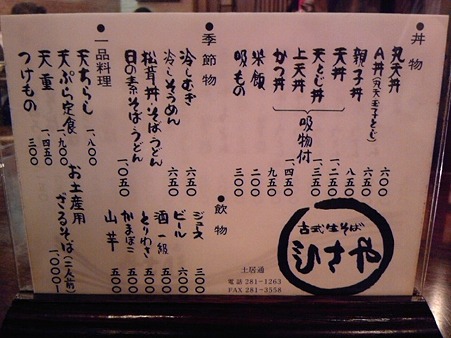 ●丼物
丸天丼 六〇〇
A丼(丸天玉子とじ) 六五〇
親子丼 八〇〇
天丼 一、二五〇
天とじ丼 一、三五〇
上天丼
かつ丼 九五〇
吸物付
米飯
吸もの
●季節物
冷しむぎ 六五〇
冷しそうめん 六五〇
松茸丼・そば・うどん
そば・うどん 一、〇五〇
●飲物
ジュース 三〇〇
ビール 六〇〇
酒一級 五〇〇
とりわさ 五〇〇
かまぼこ 五〇〇
山芋 五〇〇
●一品料理
天ちらし 一、八〇〇
天ぷら定食 一、九〇〇
天重 一、四五〇
つけもの 三〇〇
お土産用
ざるそば(二人前) 一、〇〇〇
古式生そば
ひさや
土居通
電話 281-1263
FAX 281-3558